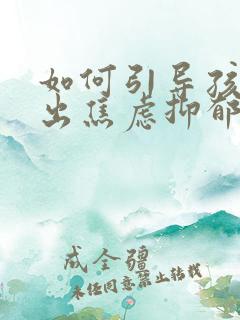 如何引导孩
出焦虑抑郁
成全疆
未经同意禁止转载